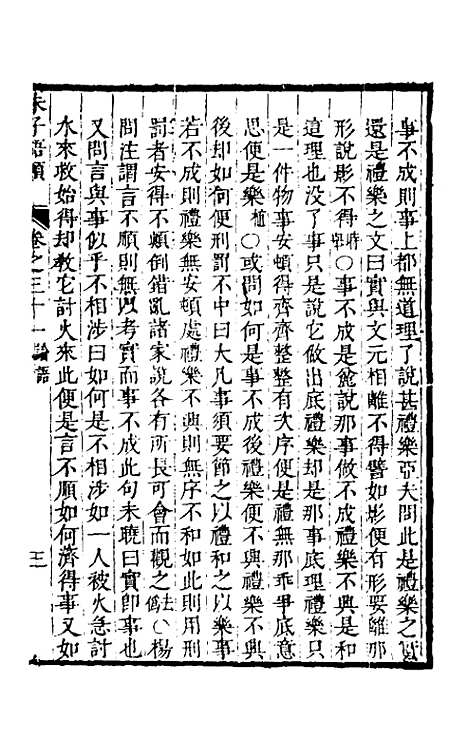 事不成則事上都無道理了說甚禮樂亞夫問此是禮樂之實
還是禮樂之文曰實與文元相離不得譬如影便有形要離那
形說影不得時舉○事不成是麄說那事做不成禮樂不興是和
這理也没了事只是說它做出底禮樂却是那事底理禮樂只
是一件物事安頓得齊齊整整有次序便是禮無那乖爭底意
思便是樂植○或問如何是事不成後禮樂便不興禮樂不興
後却如何便刑罰不中曰大凡事須要節之以禮和之以樂事
若不成則禮樂無安頓處禮樂不興則無序不和如此則用刑
罰者安得不顛倒錯亂諸家說各有所長可會而觀之去偽○楊
問注謂言不順則無以考實而事不成此句未曉曰實即事也
又問言與事似乎不相涉曰如何是不相涉如一人被火急討
水來救始得却教它討火來此便是言不順如何濟得事又如
朱子語類
卷之三十一
論語
三